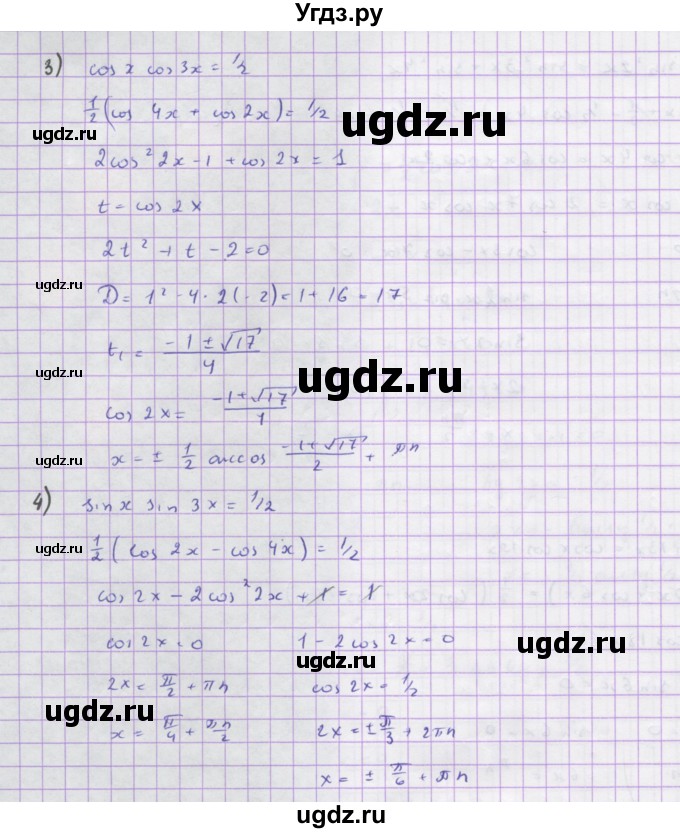 Угдз.ру
3) cos x cos 3x = 1/2
1/2 (cos 4x + cos 2x) = 1/2
ugdz.ru
ugdz.ru
2cos² 2x - 1 + cos 2x = 1
t = cos 2x
ugdz.ru
2t² + t - 2 = 0
ugdz.ru
D = 1² - 4 · 2(-2) = 1 + 16 = 17
t₁ = (-1 ± √17)/4
ugdz.ru
cos 2x = (-1+√17)/1
ugdz.ru
x = ± 1/2 arccos (-1+√17)/2 + πn
4) sin x sin 3x = 1/2
ugdz.ru
1/2 (cos 2x - cos 4x) = 1/2
cos 2x - 2cos² 2x + 1 = 1
cos 2x = 0    1 - 2cos 2x = 0
ugdz.ru
ugdz.ru
2x = π/2 + πn    cos 2x = 1/2
ugdz.ru
x = π/4 + πn/2    2x = ± π/3 + 2πn
x = ± π/6 + πn
ugdz.ru